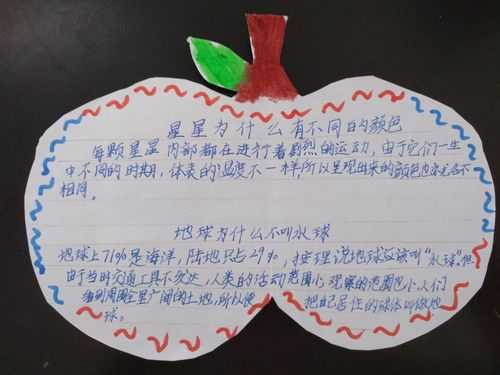 星星为什么有不同的颜色
每颗星星内部都在进行着剧烈的运动,由于它们一生
中不同的时期,体表的温度不一样所以呈现出来的颜色也亦各不
相同。
地球为什么不叫水球
地球上71%是海洋,陆地只占29%,按理说地球应该叫"水球"。但
由于当时交通工具不发达,人类的活动范围小观察的范围也小,人们
看到周围全是广阔的土地,所以便 把自己居住的球体叫做地
球。